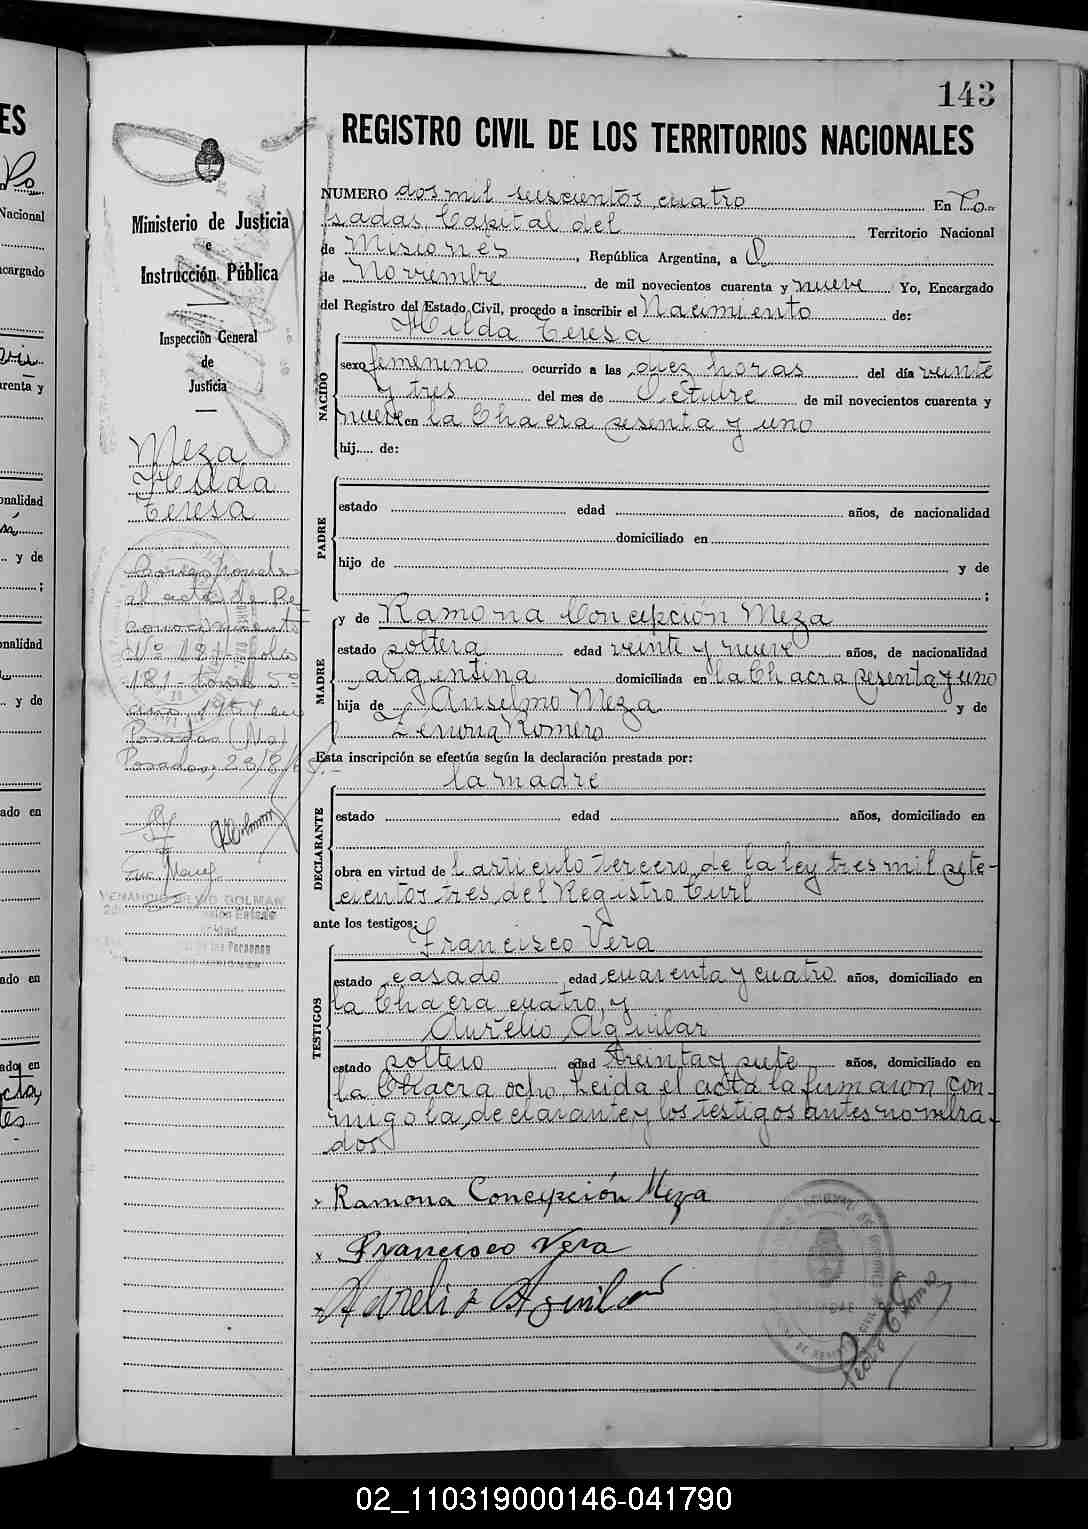 143
REGISTRO CIVIL DE LOS TERRITORIOS NACIONALES
NUMERO dos mil seiscientos cuatro En Po-
sadas, Capital del Territorio Nacional
de Misiones, República Argentina, a
de Noviembre de mil novecientos cuarenta y nueve Yo, Encargado
del Registro del Estado Civil, procedo a inscribir el Nacimiento de:
Hilda Teresa
NACIDO
sexo femenino ocurrido a las diez horas del día veinte
y tres del mes de Octubre de mil novecientos cuarenta y
nueve en la Chacra sesenta y uno
hij.... de:
PADRE
estado edad años, de nacionalidad
domiciliado en
hijo de y de
;
MADRE
y de Ramona Concepción Meza
estado soltera edad veinte y nueve años, de nacionalidad
argentina domiciliada en la Chacra sesenta y uno
hija de Anselmo Meza y de
Romero
Esta inscripción se efectúa según la declaración prestada por:
la madre
DECLARANTE
estado edad años, domiciliado en
obra en virtud de l artículo tercero de la ley tres mil sete-
cientos tres del Registro Civil
ante los testigos:
Francisco Vera
TESTIGOS
estado casado edad cuarenta y cuatro años, domiciliado en
la Chacra cuatro, y
Aurelio Aguilar
estado soltero edad treinta y siete años, domiciliado en
la Chacra ocho. Leída el acta la firmaron con-
migo la declarante y los testigos antes nombra-
dos
x Ramona Concepción Meza
x Francisco Vera
x Aurelio Aguilar
Ministerio de Justicia
e
Instrucción Pública
Inspección General
de
Justicia
Meza
Hilda
Teresa
Corresponde
al acta de Re
conocimiento
Nº 181 folio
181 tomo 5º
año 1951 en
Posadas (Mes)
Posadas, 23/8/
02_110319000146-041790